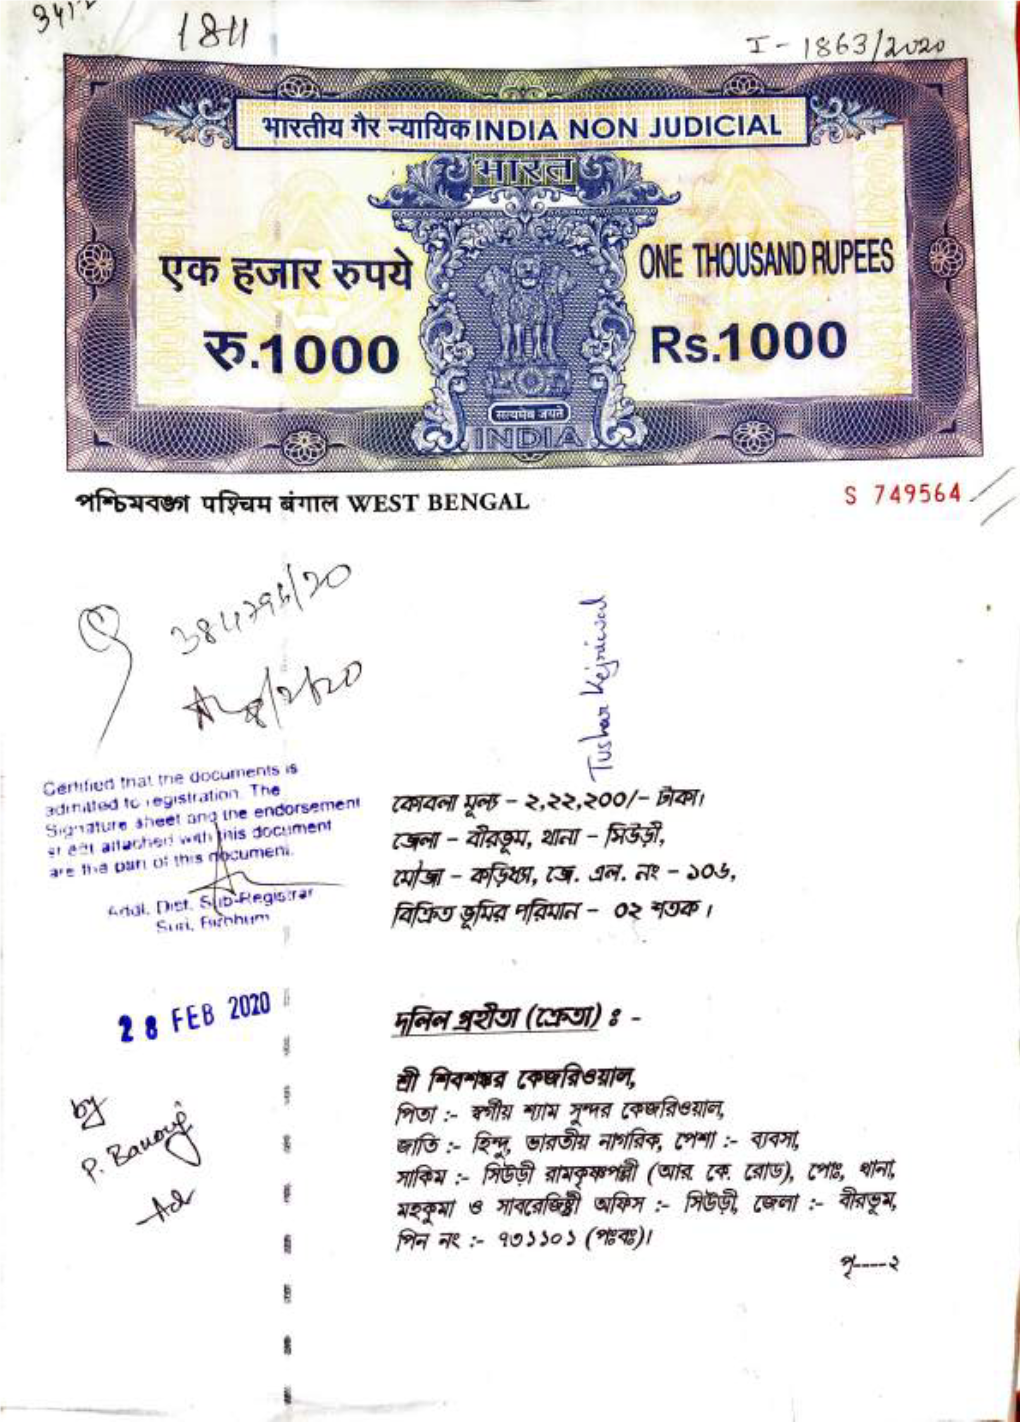 1811
I - 1863/2020
भारतीय गैर न्यायिक INDIA NON JUDICIAL
भारत
एक हजार रुपये
ONE THOUSAND RUPEES
रु.1000
Rs.1000
सत्यमेव जयते
INDIA
পশ্চিমবঙ্গ पश्चिम बंगाल WEST BENGAL
S 749564
Tushar Kejriwal
Certified that the documents is
admitted to registration. The
Signature sheet and the endorsement
sheet attached with this document
are the part of this document.
Addl. Dist. Sub-Registrar
Suri, Birbhum
28 FEB 2020
by
P. Banerji
কোবলা মূল্য – ২,২২,২০০/- টাকা।
জেলা – বীরভূম, থানা – সিউড়ী,
মৌজা – কড়িধ্যা, জে. এল. নং – ১০৬,
বিক্রিত ভূমির পরিমান – ০২ শতক।
দলিল গ্রহীতা (ক্রেতা) ঃ -
শ্রী শিবশঙ্কর কেজরিওয়াল,
পিতা :- স্বর্গীয় শ্যাম সুন্দর কেজরিওয়াল,
জাতি :- হিন্দু, ভারতীয় নাগরিক, পেশা :- ব্যবসা,
সাকিম :- সিউড়ী রামকৃষ্ণপল্লী (আর. কে. রোড), পোঃ, থানা,
মহকুমা ও সাবরেজিষ্ট্রী অফিস :- সিউড়ী, জেলা :- বীরভূম,
পিন নং :- ৭৩১১০১ (পঃবঃ)।
পৃ----২